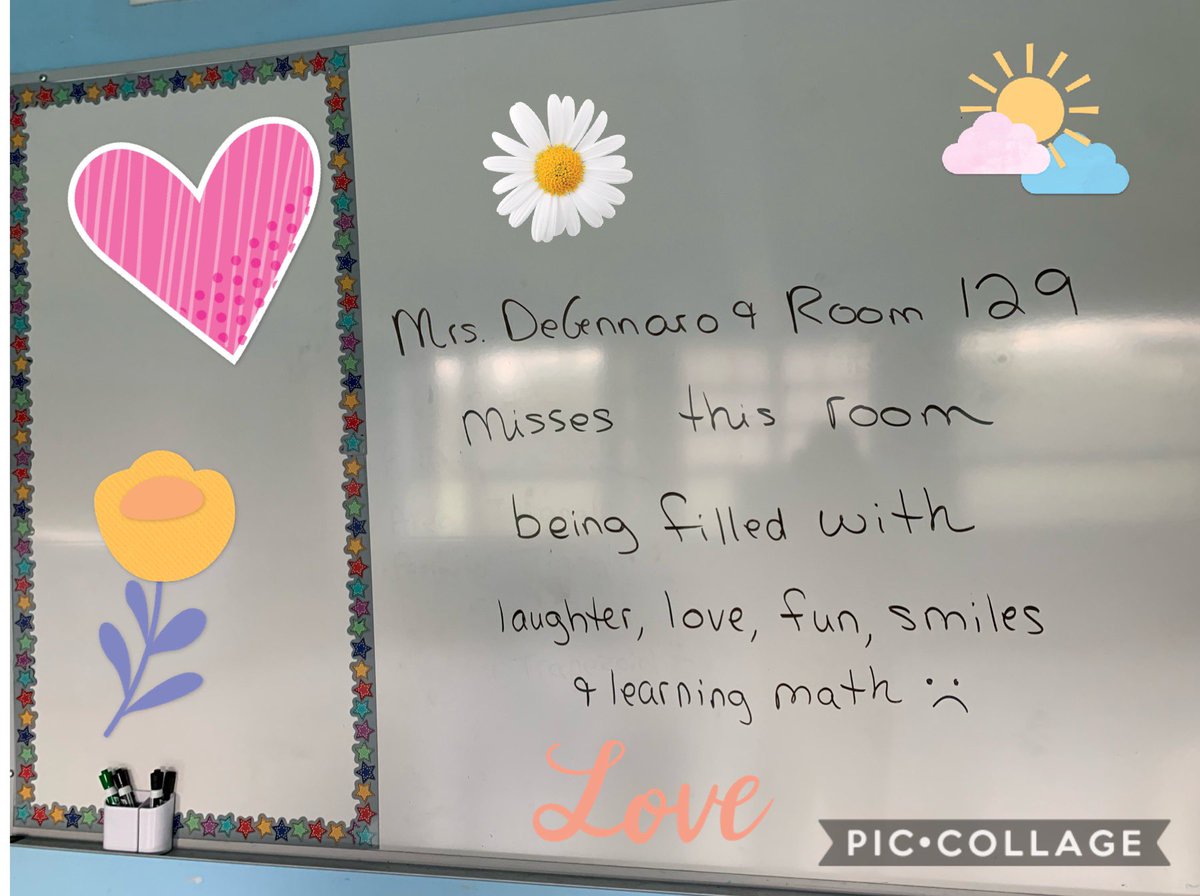 Mrs. DeGennaro & Room 129
misses this room
being filled with
laughter, love, fun, smiles
& learning math :(
Love
PIC•COLLAGE